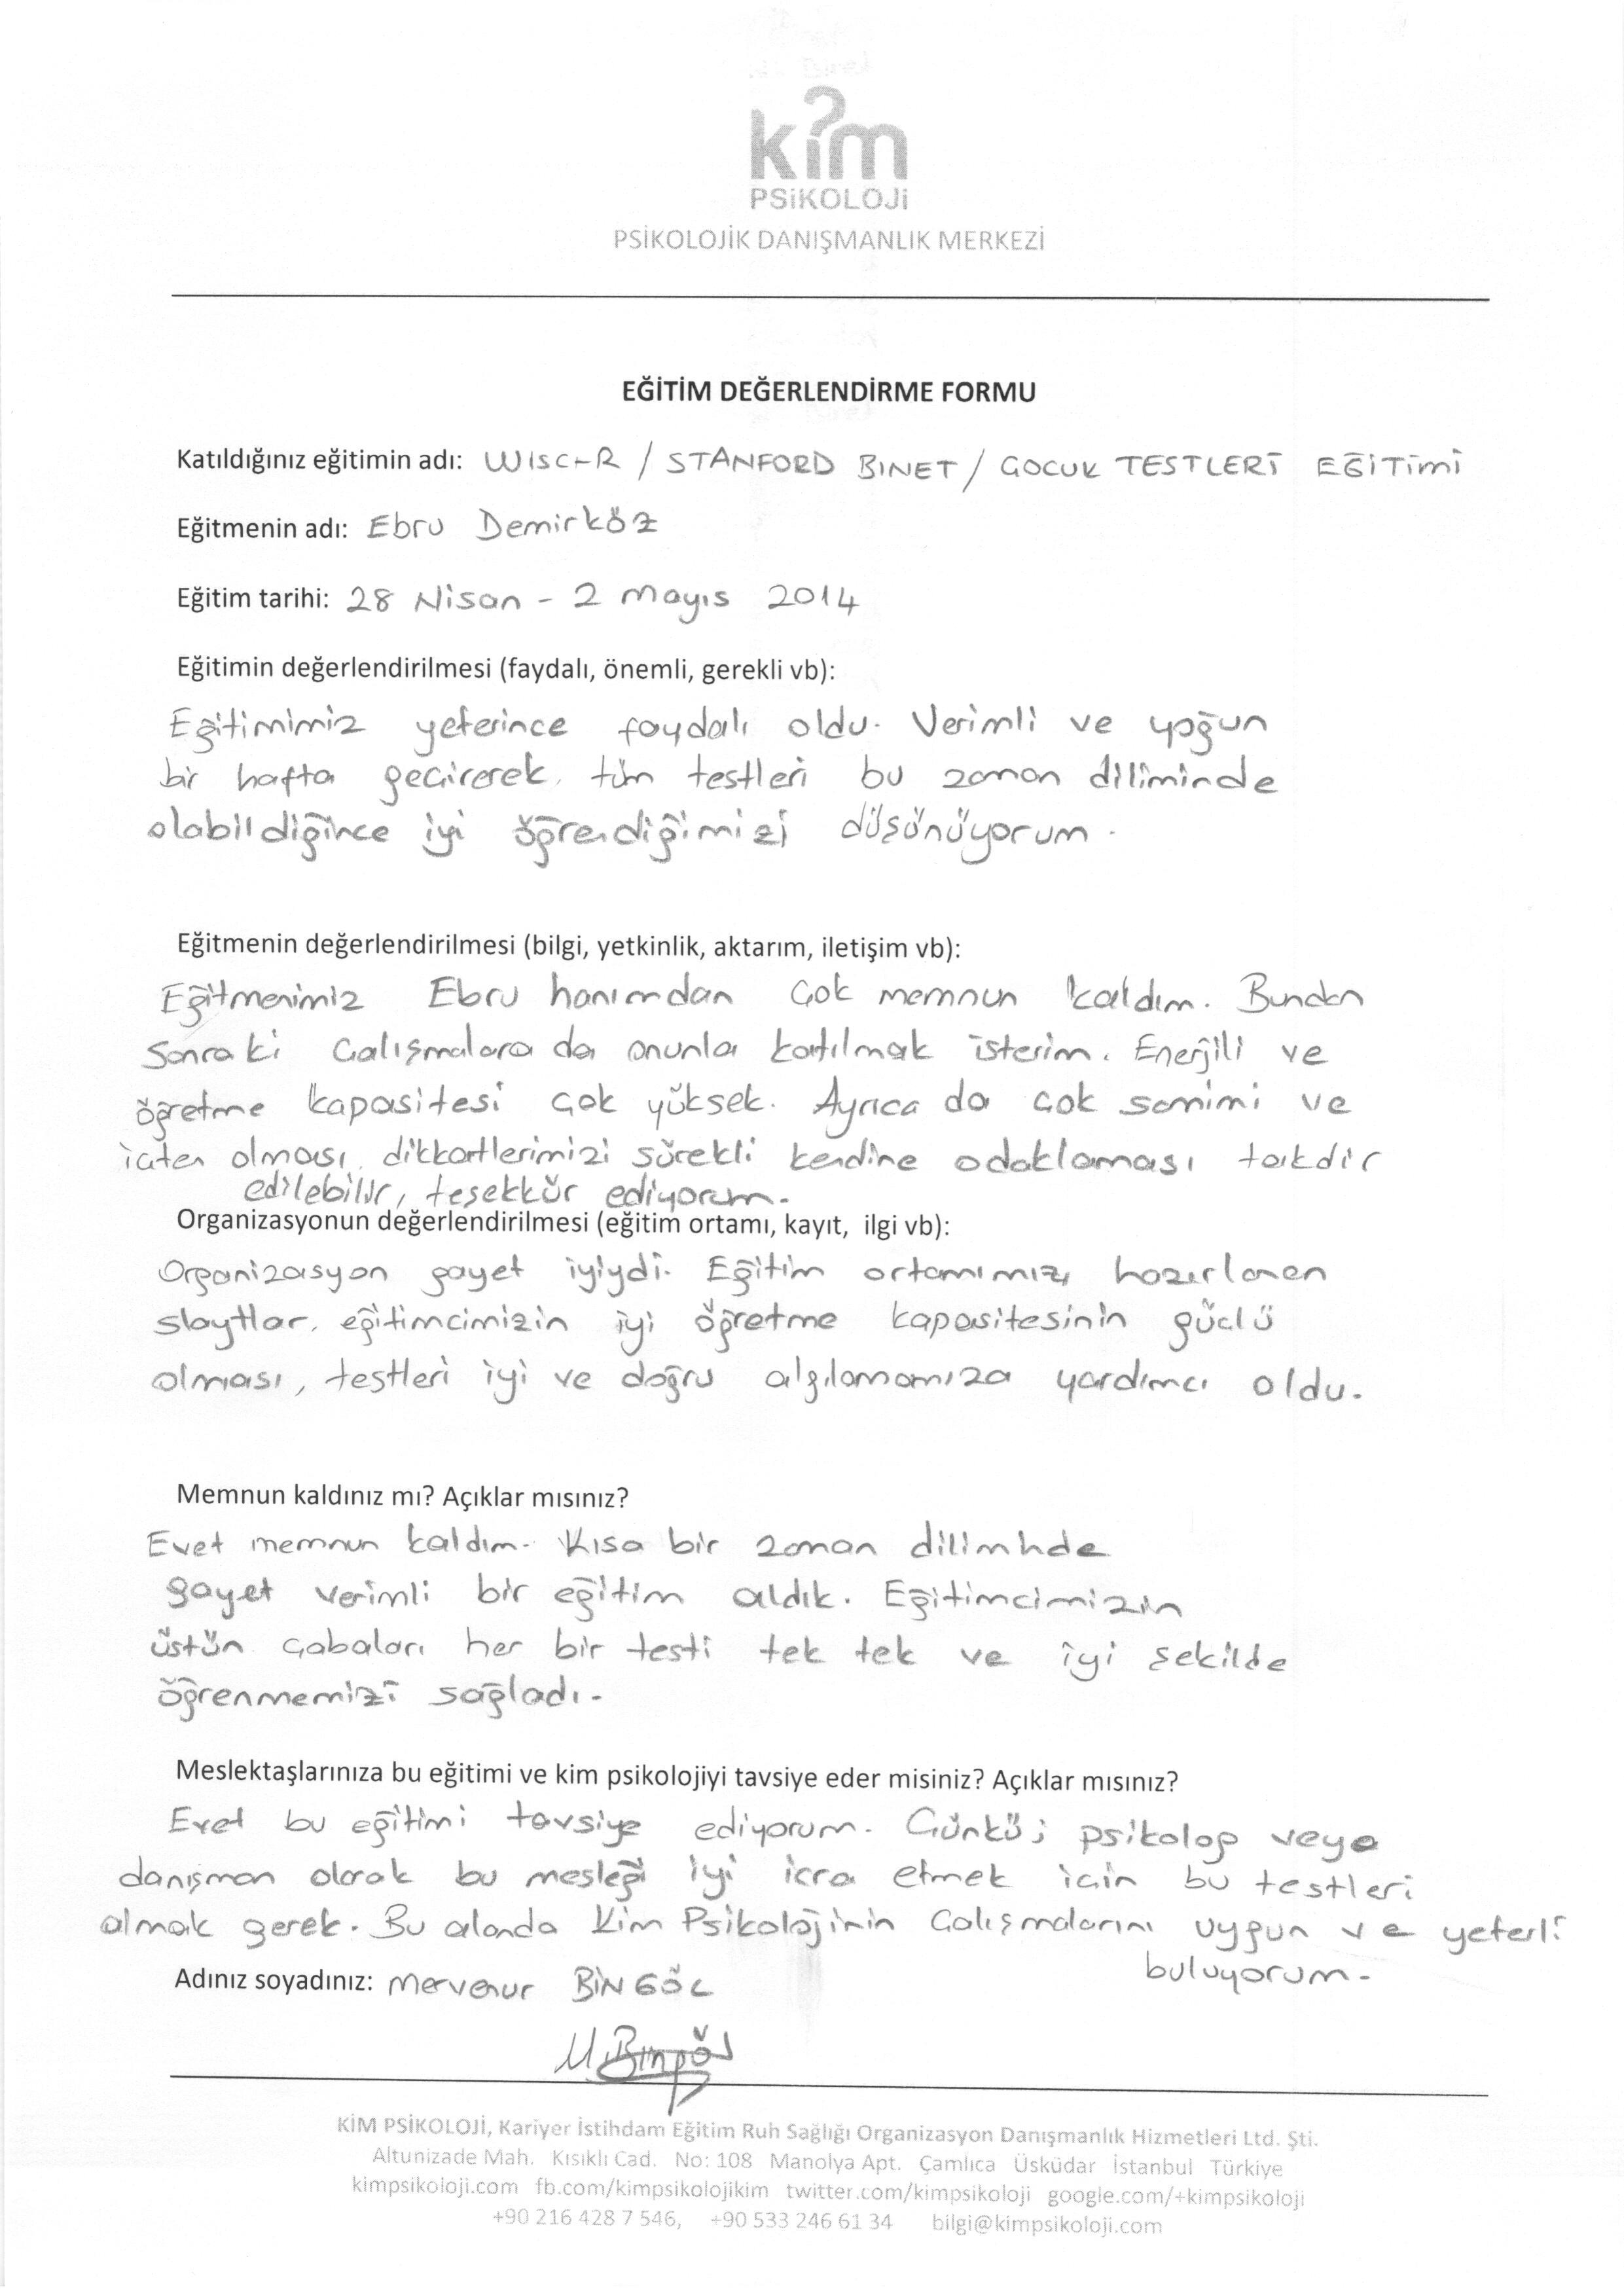 kim
PSiKOLOJi
PSİKOLOJİK DANIŞMANLIK MERKEZİ
EĞİTİM DEĞERLENDİRME FORMU
Katıldığınız eğitimin adı: WISC-R / STANFORD BINET / ÇOCUK TESTLERİ EĞİTİMİ
Eğitmenin adı: Ebru Demirköz
Eğitim tarihi: 28 Nisan - 2 Mayıs 2014
Eğitimin değerlendirilmesi (faydalı, önemli, gerekli vb):
Eğitimimiz yeterince faydalı oldu. Verimli ve yoğun
bir hafta geçirerek, tüm testleri bu zaman diliminde
olabildiğince iyi öğrendiğimizi düşünüyorum.
Eğitmenin değerlendirilmesi (bilgi, yetkinlik, aktarım, iletişim vb):
Eğitmenimiz Ebru hanımdan çok memnun kaldım. Bundan
sonraki çalışmalara da onunla katılmak isterim. Enerjili ve
öğretme kapasitesi çok yüksek. Ayrıca da çok samimi ve
içten olması, dikkatlerimizi sürekli kendine odaklaması takdir
edilebilir, teşekkür ediyorum.
Organizasyonun değerlendirilmesi (eğitim ortamı, kayıt, ilgi vb):
Organizasyon gayet iyiydi. Eğitim ortamımız, hazırlanan
slaytlar, eğitimcimizin iyi öğretme kapasitesinin güçlü
olması, testleri iyi ve doğru algılamamıza yardımcı oldu.
Memnun kaldınız mı? Açıklar mısınız?
Evet memnun kaldım. Kısa bir zaman diliminde
gayet verimli bir eğitim aldık. Eğitimcimizin
üstün çabaları her bir testi tek tek ve iyi şekilde
öğrenmemizi sağladı.
Meslektaşlarınıza bu eğitimi ve kim psikolojiyi tavsiye eder misiniz? Açıklar mısınız?
Evet bu eğitimi tavsiye ediyorum. Çünkü; psikolog veya
danışman olarak bu mesleği iyi icra etmek için bu testleri
almak gerek. Bu alanda Kim Psikolojinin çalışmalarını uygun ve yeterli
buluyorum.
Adınız soyadınız: Mervenur BİNGÖL
M.Bingöl
KİM PSİKOLOJİ, Kariyer İstihdam Eğitim Ruh Sağlığı Organizasyon Danışmanlık Hizmetleri Ltd. Şti.
Altunizade Mah. Kısıklı Cad. No: 108 Manolya Apt. Çamlıca Üsküdar İstanbul Türkiye
kimpsikoloji.com fb.com/kimpsikolojikim twitter.com/kimpsikoloji google.com/+kimpsikoloji
+90 216 428 7 546, +90 533 246 61 34 bilgi@kimpsikoloji.com